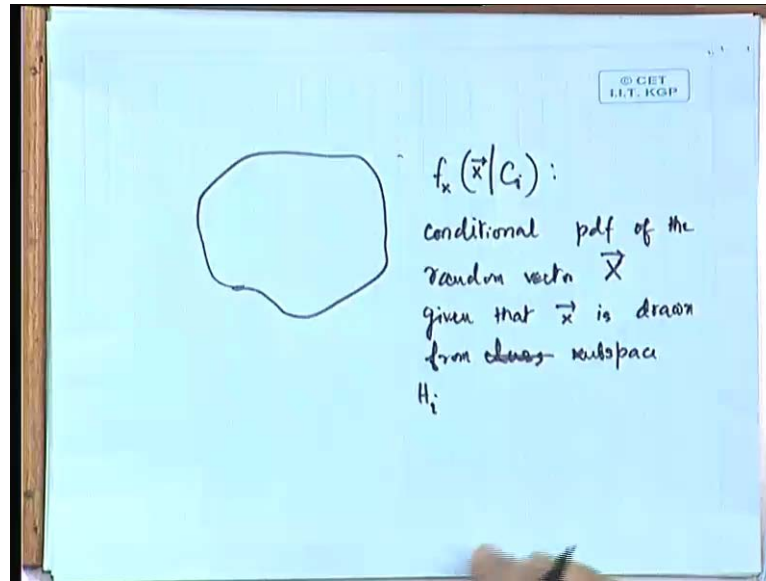 © CET
I.I.T. KGP
fₓ(x⃗|Cᵢ) :
conditional pdf of the
random vector X⃗
given that x⃗ is drawn
from subspace
Hᵢ